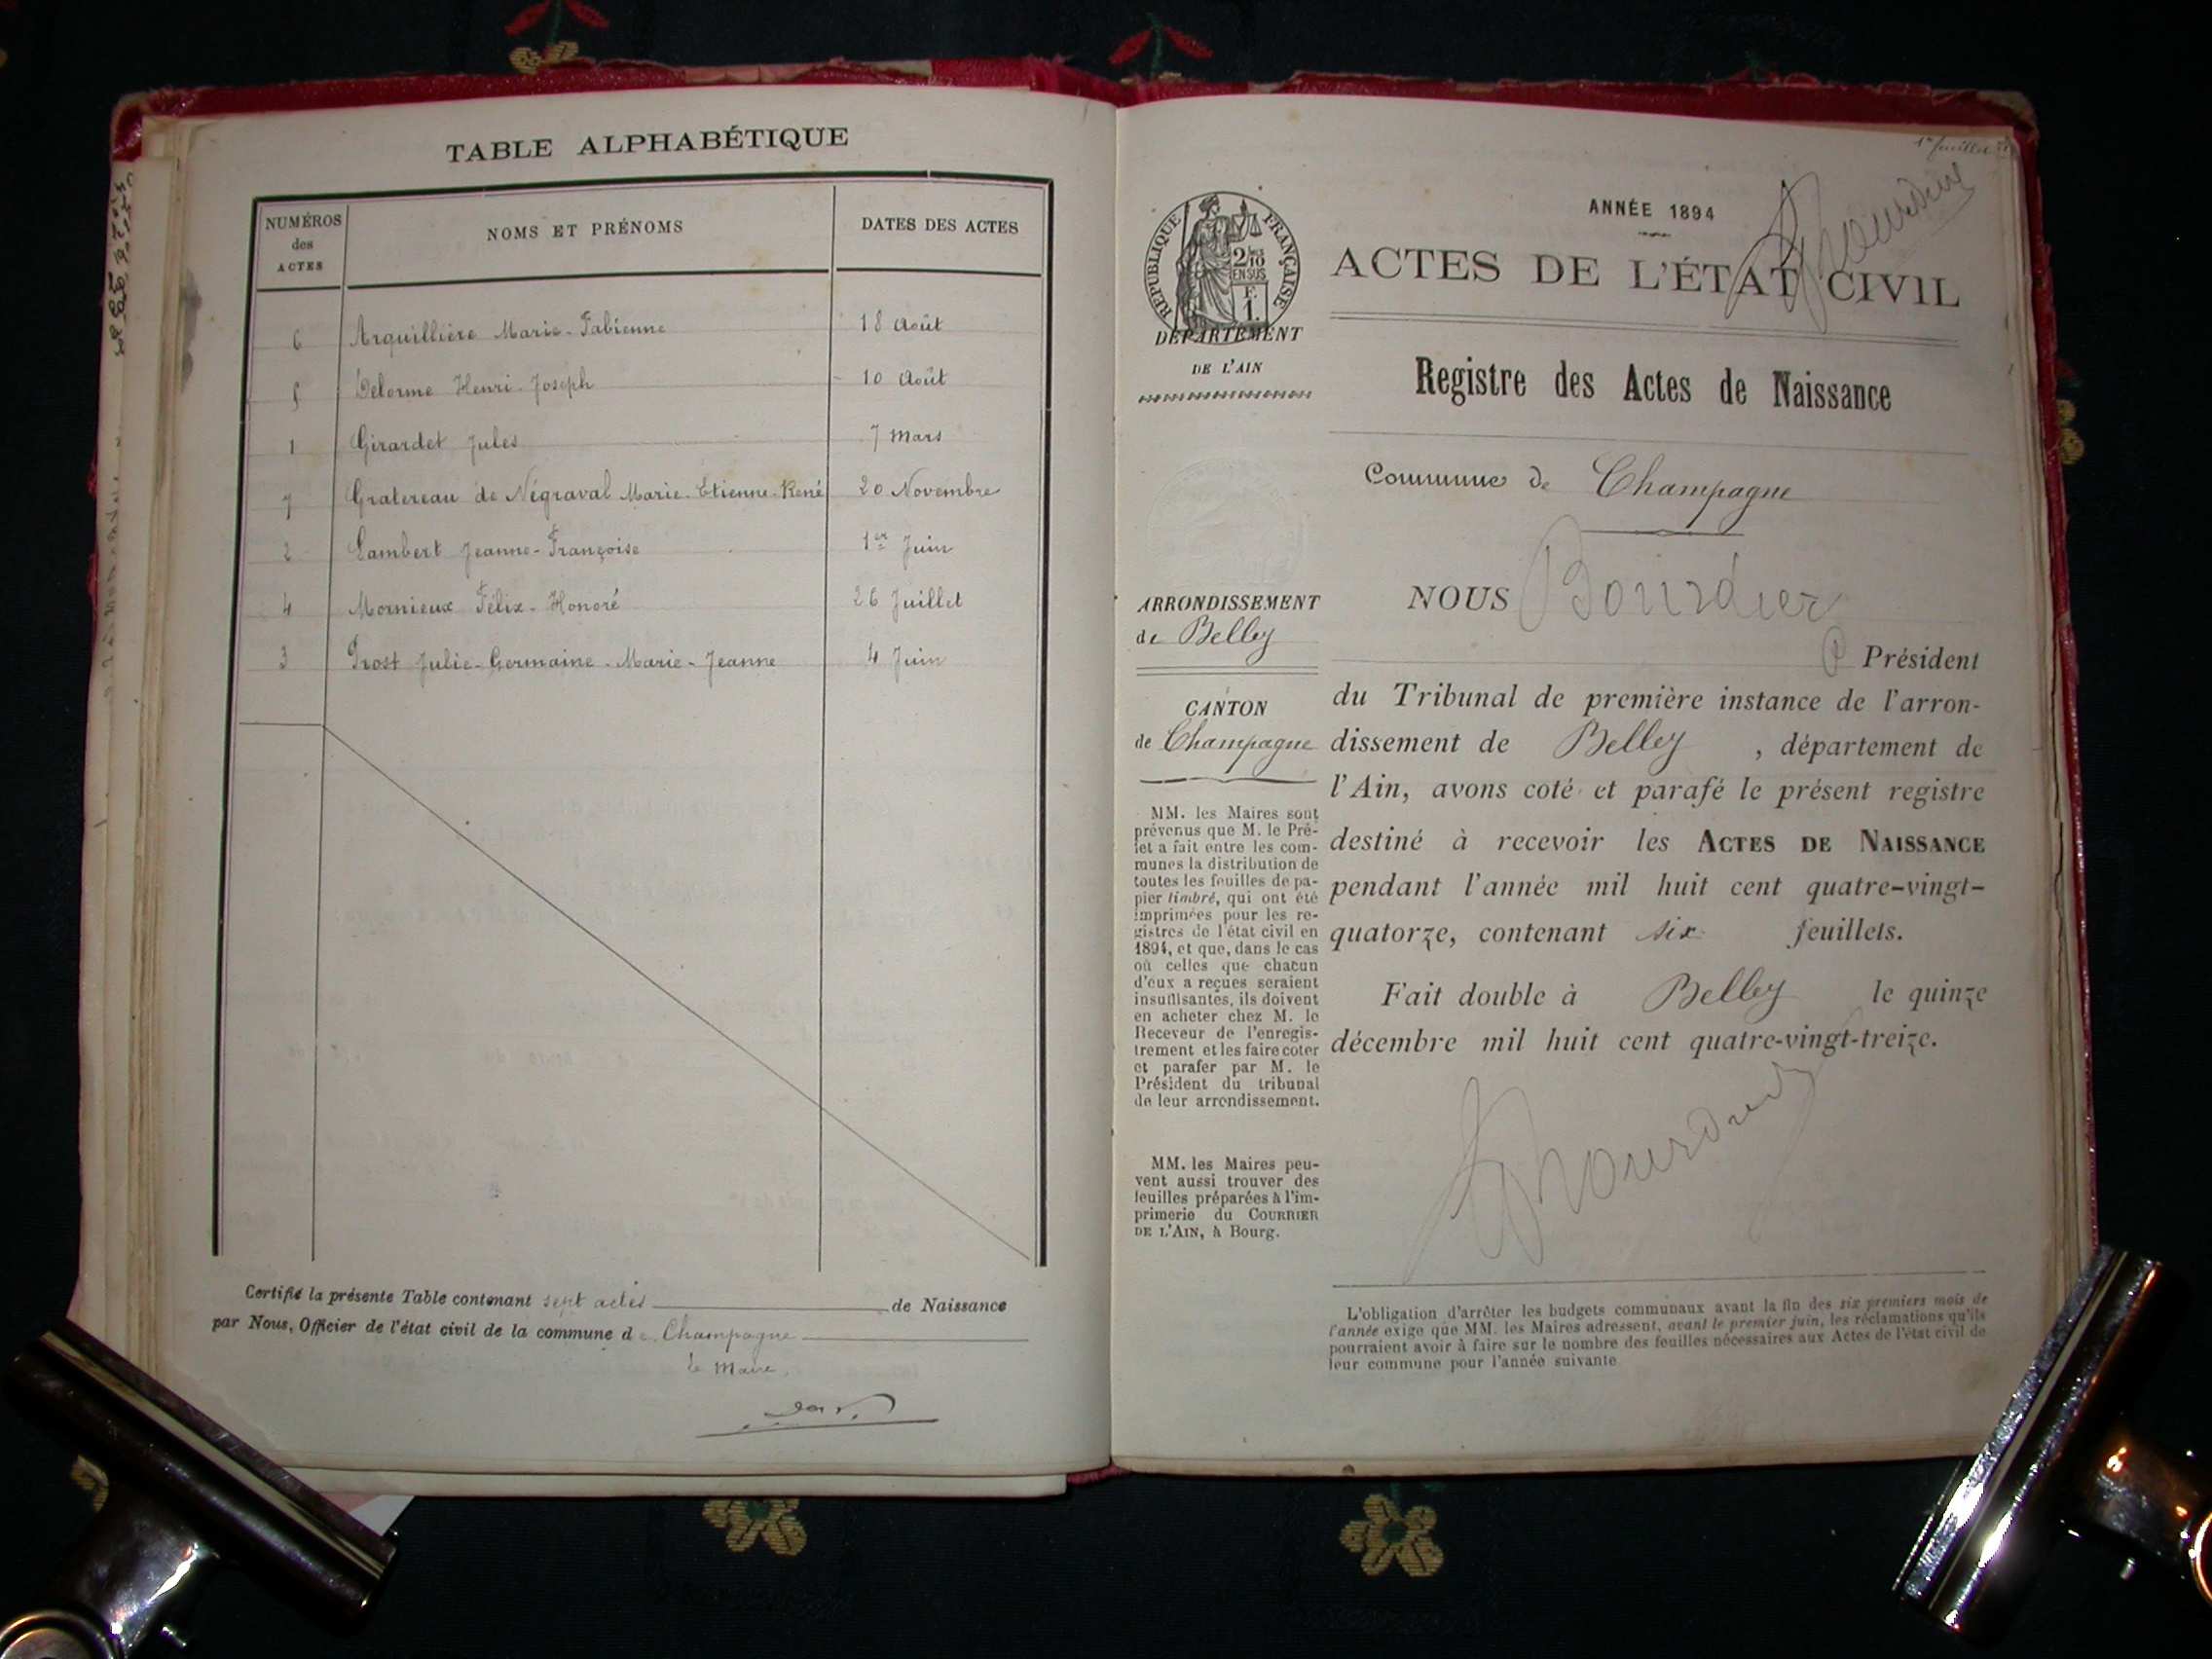 TABLE ALPHABÉTIQUE
NUMÉROS
des
ACTES
NOMS ET PRÉNOMS
DATES DES ACTES
6 Arquillière Marie-Fabienne 18 Août
5 Delorme Henri-Joseph 10 Août
1 Girardet Jules 7 Mars
7 Gratereau de Négraval Marie-Etienne-René 20 Novembre
2 Lambert Jeanne-Françoise 1er Juin
4 Mornieux Félix-Honoré 26 Juillet
3 Prost Julie-Germaine-Marie-Jeanne 4 Juin
Certifié la présente Table contenant sept actes de Naissance
par Nous, Officier de l'état civil de la commune de Champagne
Le Maire,
1er feuillet
Bourdier
ANNÉE 1894
ACTES DE L'ÉTAT CIVIL
RÉPUBLIQUE FRANÇAISE
2/10
EN SUS
F.
1.
DÉPARTEMENT
DE L'AIN
Registre des Actes de Naissance
Commune de Champagne
ARRONDISSEMENT
de Belley
CANTON
de Champagne
MM. les Maires sont
prévenus que M. le Pré-
fet a fait entre les com-
munes la distribution de
toutes les feuilles de pa-
pier timbré, qui ont été
imprimées pour les re-
gistres de l'état civil en
1894, et que, dans le cas
où celles que chacun
d'eux a reçues seraient
insuffisantes, ils doivent
en acheter chez M. le
Receveur de l'enregis-
trement et les faire coter
et parafer par M. le
Président du tribunal
de leur arrondissement.
MM. les Maires peu-
vent aussi trouver des
feuilles préparées à l'im-
primerie du COURRIER
DE L'AIN, à Bourg.
NOUS Bourdier
P Président
du Tribunal de première instance de l'arron-
dissement de Belley , département de
l'Ain, avons coté et parafé le présent registre
destiné à recevoir les ACTES DE NAISSANCE
pendant l'année mil huit cent quatre-vingt-
quatorze, contenant six feuillets.
Fait double à Belley le quinze
décembre mil huit cent quatre-vingt-treize.
Bourdier
L'obligation d'arrêter les budgets communaux avant la fin des six premiers mois de
l'année exige que MM. les Maires adressent, avant le premier juin, les réclamations qu'ils
pourraient avoir à faire sur le nombre des feuilles nécessaires aux Actes de l'état civil de
leur commune pour l'année suivante